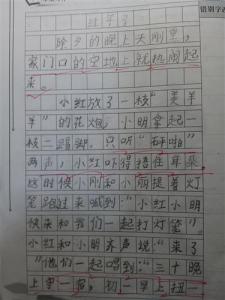 错别字改
过年了
除夕的晚上天刚黑,
家门口的空地上就热闹起
来。
小红放了一枝"美羊
羊"的花炮,小明拿起一
枝二踢脚,只听"砰啪"
两声,小红吓得捂住耳朵。
这时候小刚和小丽提着灯
笼跑过来喊到:"小红小明
快来和我们一起打灯笼"。
小红和小明齐声说:"来了
"他们一起唱到:"三十晚
上 一 ,初一早上扭一